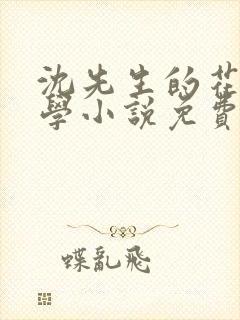 沈先生的花
學小說免費
蝶亂飛